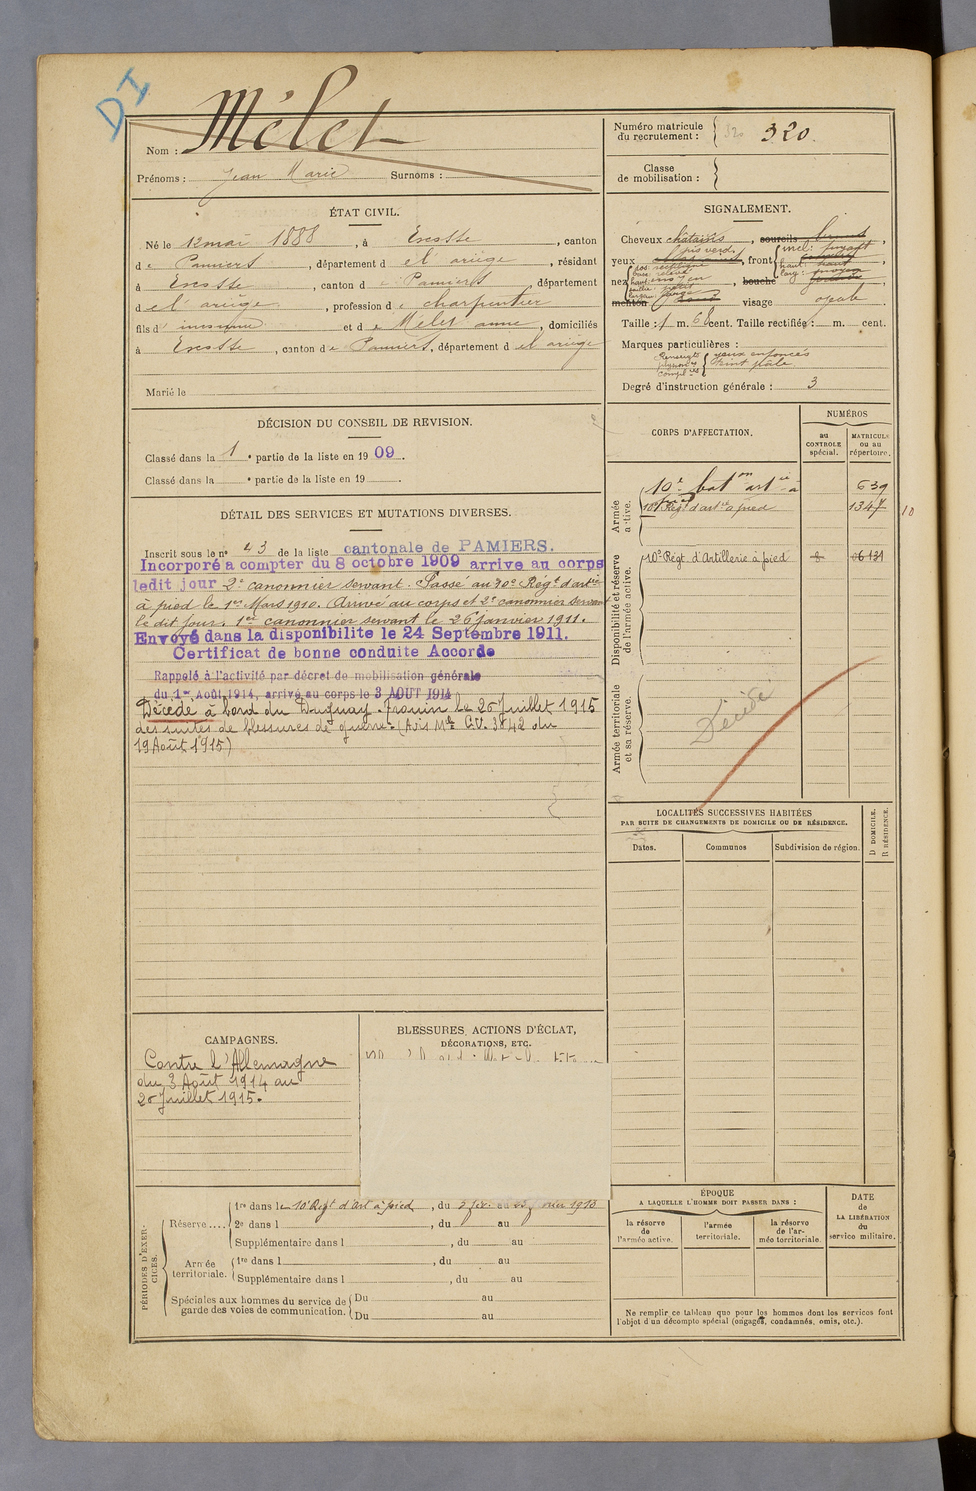 DI
Nom : Mélet
Prénoms : Jean Marie Surnoms :
ÉTAT CIVIL.
Né le 12 mai 1888, à Escosse, canton
de Pamiers, département de l'ariège, résidant
à Escosse, canton de Pamiers, département
de l'ariège, profession de charpentier
fils d' inconnu et de Mélet anne, domiciliés
à Escosse, canton de Pamiers, département de l'ariège
Marié le
DÉCISION DU CONSEIL DE REVISION.
Classé dans la 1e partie de la liste en 1909.
Classé dans la e partie de la liste en 19 .
DÉTAIL DES SERVICES ET MUTATIONS DIVERSES.
Inscrit sous le no 43 de la liste cantonale de PAMIERS.
Incorporé a compter du 8 octobre 1909 arrive au corps
ledit jour 2e canonnier servant. Passé au 10e Régt d'artie
à pied le 1er Mars 1910. Arrivé au corps et 2e canonnier servant
le dit jour. 1er canonnier servant le 26 janvier 1911.
Envoyé dans la disponibilite le 24 Septembre 1911.
Certificat de bonne conduite Accordé
Rappelé à l'activité par décret de mobilisation générale
du 1er Août 1914, arrivé au corps le 3 AOUT 1914
Décédé à bord du Duguay-Trouin le 20 Juillet 1915
des suites de blessures de guerre. (Avis Mle G.V. 3842 du
19 Août 1915)
CAMPAGNES.
Contre l'Allemagne
du 3 Août 1914 au
20 Juillet 1915.
BLESSURES, ACTIONS D'ÉCLAT,
DÉCORATIONS, ETC.
PÉRIODES D'EXERCICES.
Réserve .... 1re dans le 10e Régt d'Art à pied, du 2 fév. au
2e dans l , du au
Supplémentaire dans l , du au
Armée territoriale. 1re dans l , du au
Supplémentaire dans l , du au
Spéciales aux hommes du service de garde des voies de communication. Du au
Du au
Numéro matricule du recrutement : 320 320.
Classe de mobilisation :
SIGNALEMENT.
Cheveux châtains, sourcils bruns,
yeux gris verd, front incl: fuyant
haut: haut
larg: moyen
nez dos rectiligne
base: relevé
haut: moyen
saillie: petit
largeur: large
bouche
menton rond visage ovale
Taille : 1 m. 68 cent. Taille rectifiée : m. cent.
Marques particulières :
Renseigts physionques compl res yeux enfoncés
teint pâle
Degré d'instruction générale : 3
CORPS D'AFFECTATION.
NUMÉROS
au CONTROLE spécial.
MATRICULE ou au répertoire.
Armée active.
10e baton artie à pied 639
10e Régt d'artie à pied 1347
10
Disponibilité et réserve de l'armée active.
10e Régt d'Artillerie à pied
Armée territoriale et sa réserve.
Décédé
LOCALITÉS SUCCESSIVES HABITÉES
PAR SUITE DE CHANGEMENTS DE DOMICILE OU DE RÉSIDENCE.
Dates. Communes Subdivision de région. D DOMICILE. R RÉSIDENCE.
ÉPOQUE
A LAQUELLE L'HOMME DOIT PASSER DANS :
la réserve de l'armée active.
l'armée territoriale.
la réserve de l'armée territoriale.
DATE de LA LIBÉRATION du service militaire.
Ne remplir ce tableau que pour les hommes dont les services font
l'objet d'un décompte spécial (engagés, condamnés, omis, etc.).